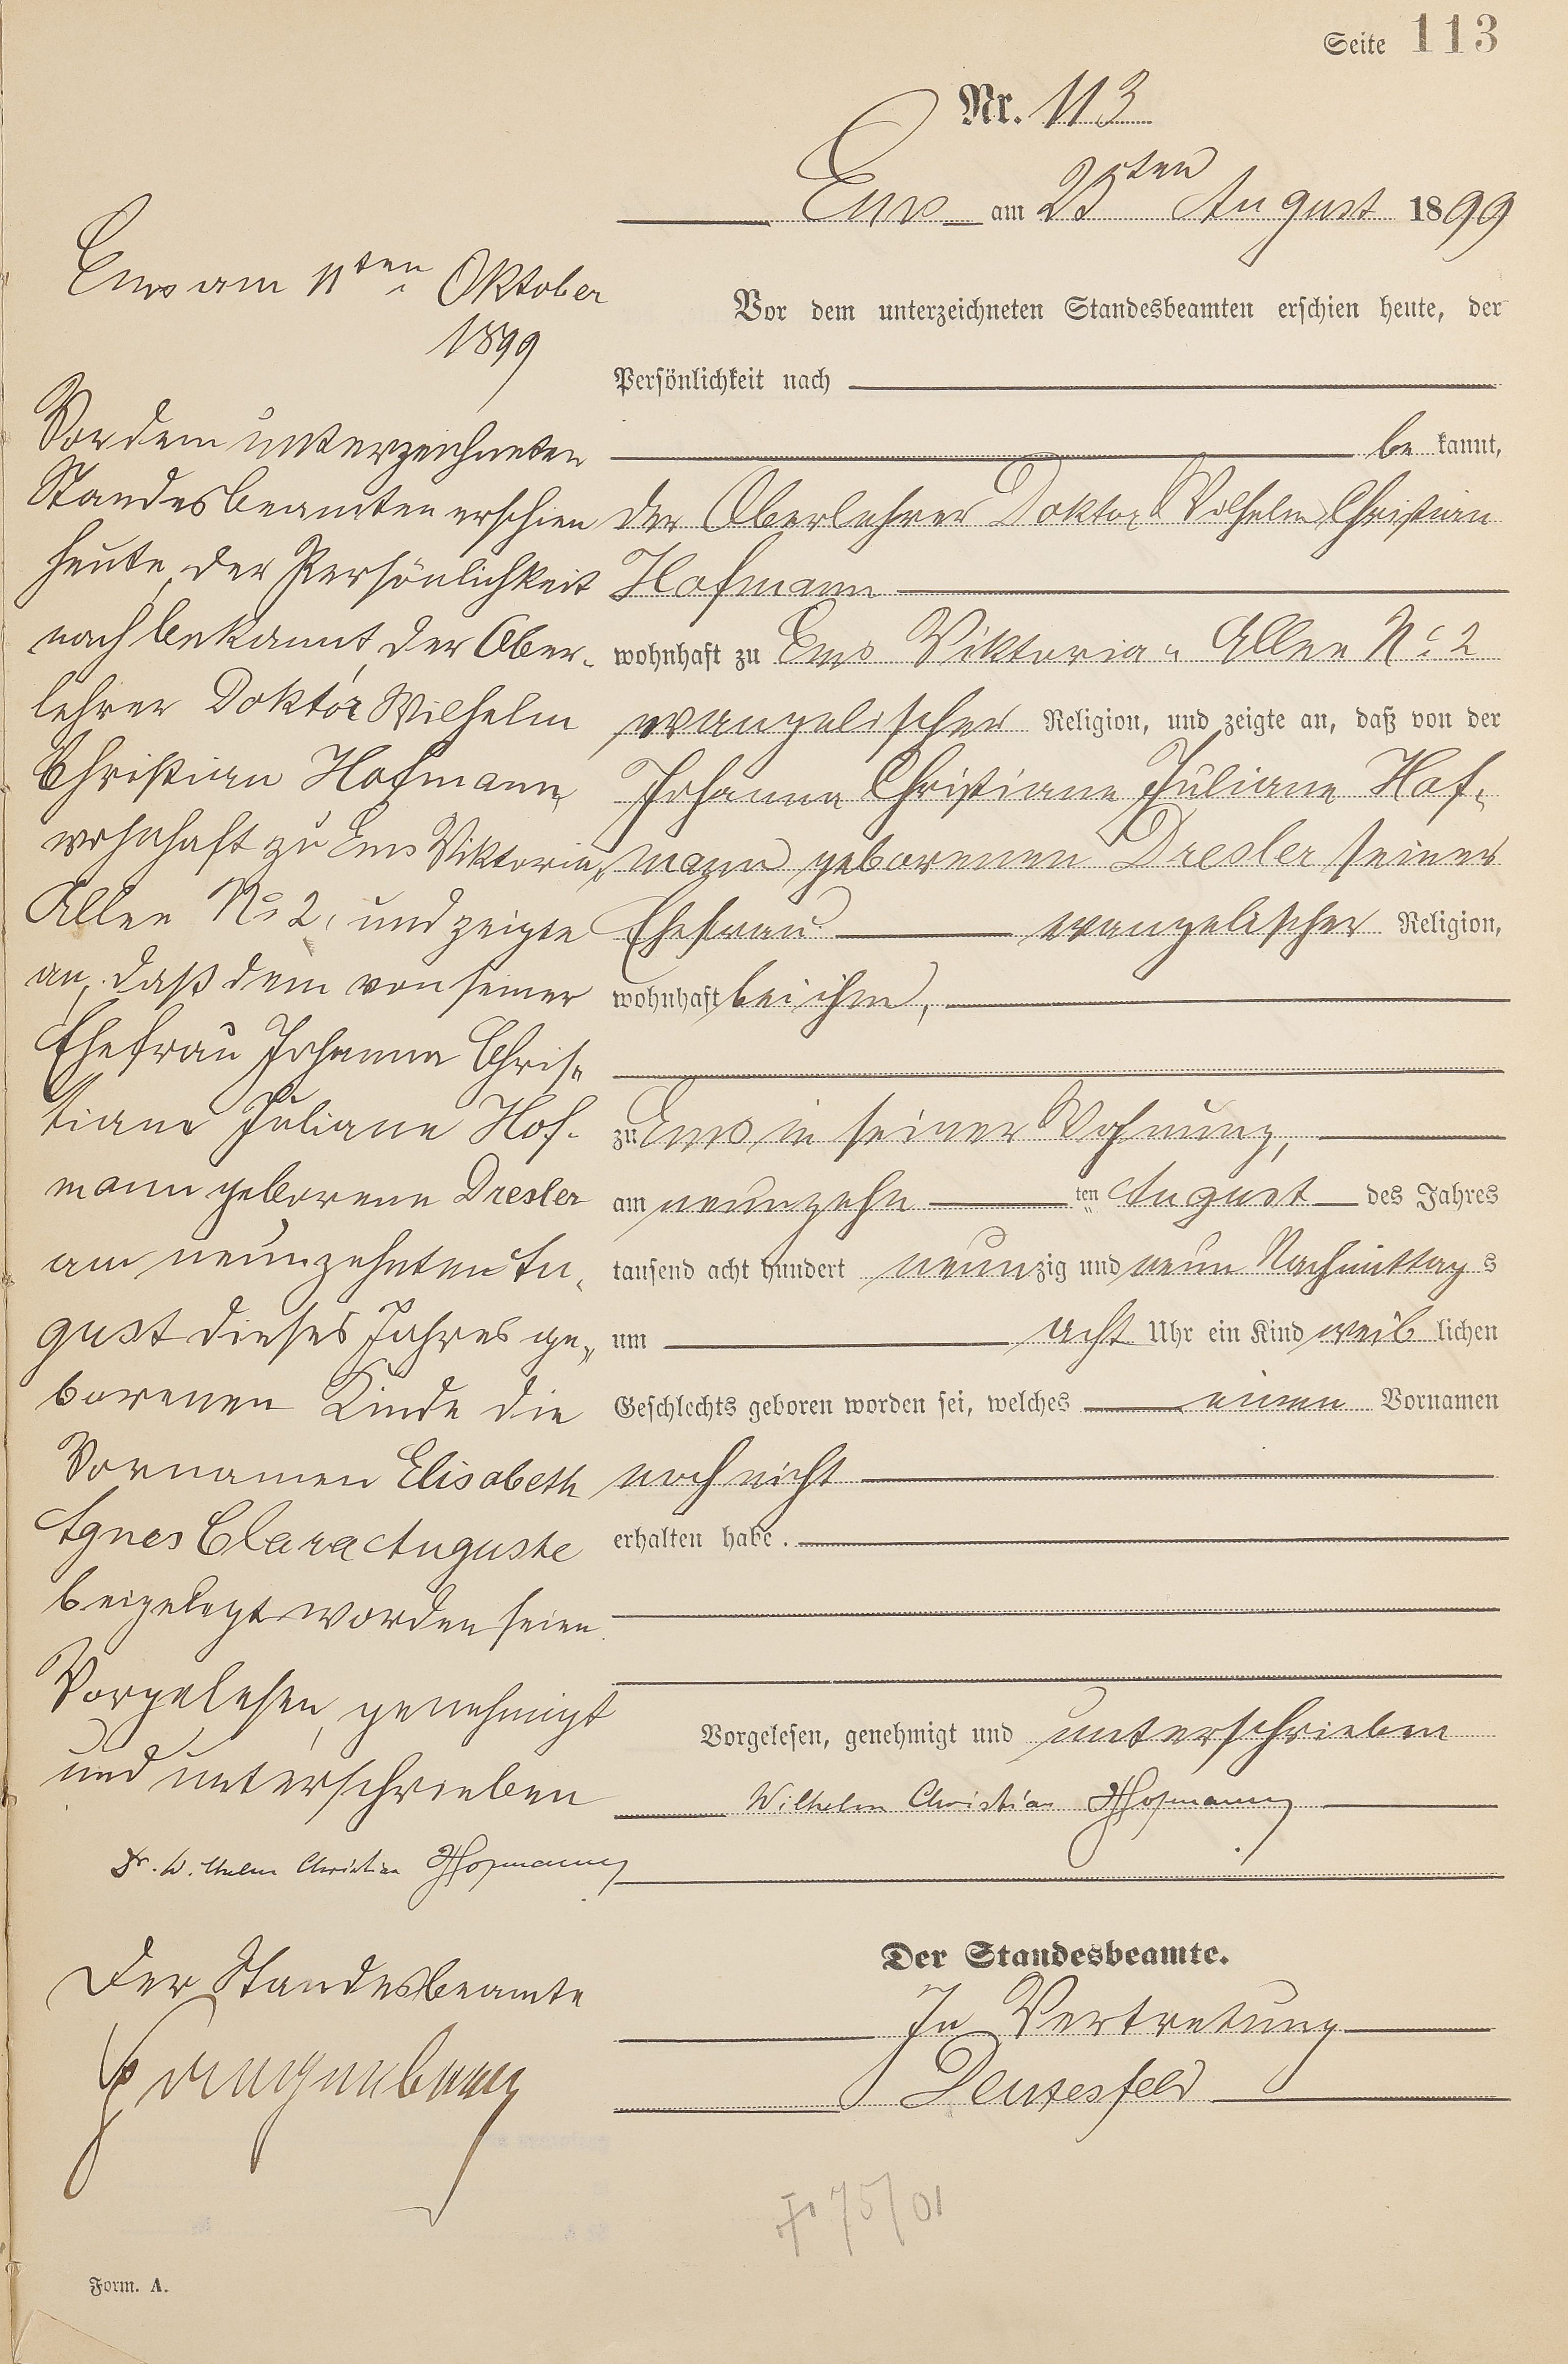 Seite 113
Nr. 113
Ems am 25ten August 1899
Vor dem unterzeichneten Standesbeamten erschien heute, der
Persönlichkeit nach
be kannt,
der Oberlehrer Doktor Wilhelm Christian
Hofmann
wohnhaft zu Ems Viktoria- Allee No 2
evangelischer Religion, und zeigte an, daß von der
Johanna Christiane Juliane Hof-
mann geborenen Dresler seiner
Ehefrau evangelischer Religion,
wohnhaft bei ihm,
zu Ems in seiner Wohnung,
am neunzehn ten August des Jahres
tausend acht hundert neunzig und neun Nachmittags
um acht Uhr ein Kind weiblichen
Geschlechts geboren worden sei, welches einen Vornamen
noch nicht
erhalten habe.
Vorgelesen, genehmigt und unterschrieben
Wilhelm Christian Hofmann
Der Standesbeamte.
In Vertretung
Ems am 11ten Oktober
1899
Vor dem unterzeichneten
Standesbeamten erschien
heute, der Persönlichkeit
nach bekannt, der Ober-
lehrer Doktor Wilhelm
Christian Hofmann,
wohnhaft zu Ems Viktoria-
Allee No 2, und zeigte
an, daß dem von seiner
Ehefrau Johanna Chris-
tiane Juliane Hof-
mann geborene Dresler
am neunzehnten Au-
gust dieses Jahres ge-
borenen Kinde die
Vornamen Elisabeth
Agnes Clara Auguste
beigelegt worden seien
Vorgelesen, genehmigt
und unterschrieben
Dr. Wilhelm Christian Hofmann
Der Standesbeamte
75/01
Form. A.